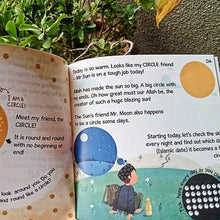 I AM A
CIRCLE!
Meet my friend, the
CIRCLE!
It is round and round
with no beginning
or end!
look around you
and round like a
Today is so warm. Looks like my CIRCLE friend
- Mr Sun is on a tough job today!
Allah has made the sun so big. A big circle with
no ends. Oh how great must our Allah be, the
creator of such a huge blazing sun!
The Sun's friend Mr. Moon also happens
to be a circle some days.
Starting today, let's check the sky
every night and find out which da
(Islamic date) it becomes a